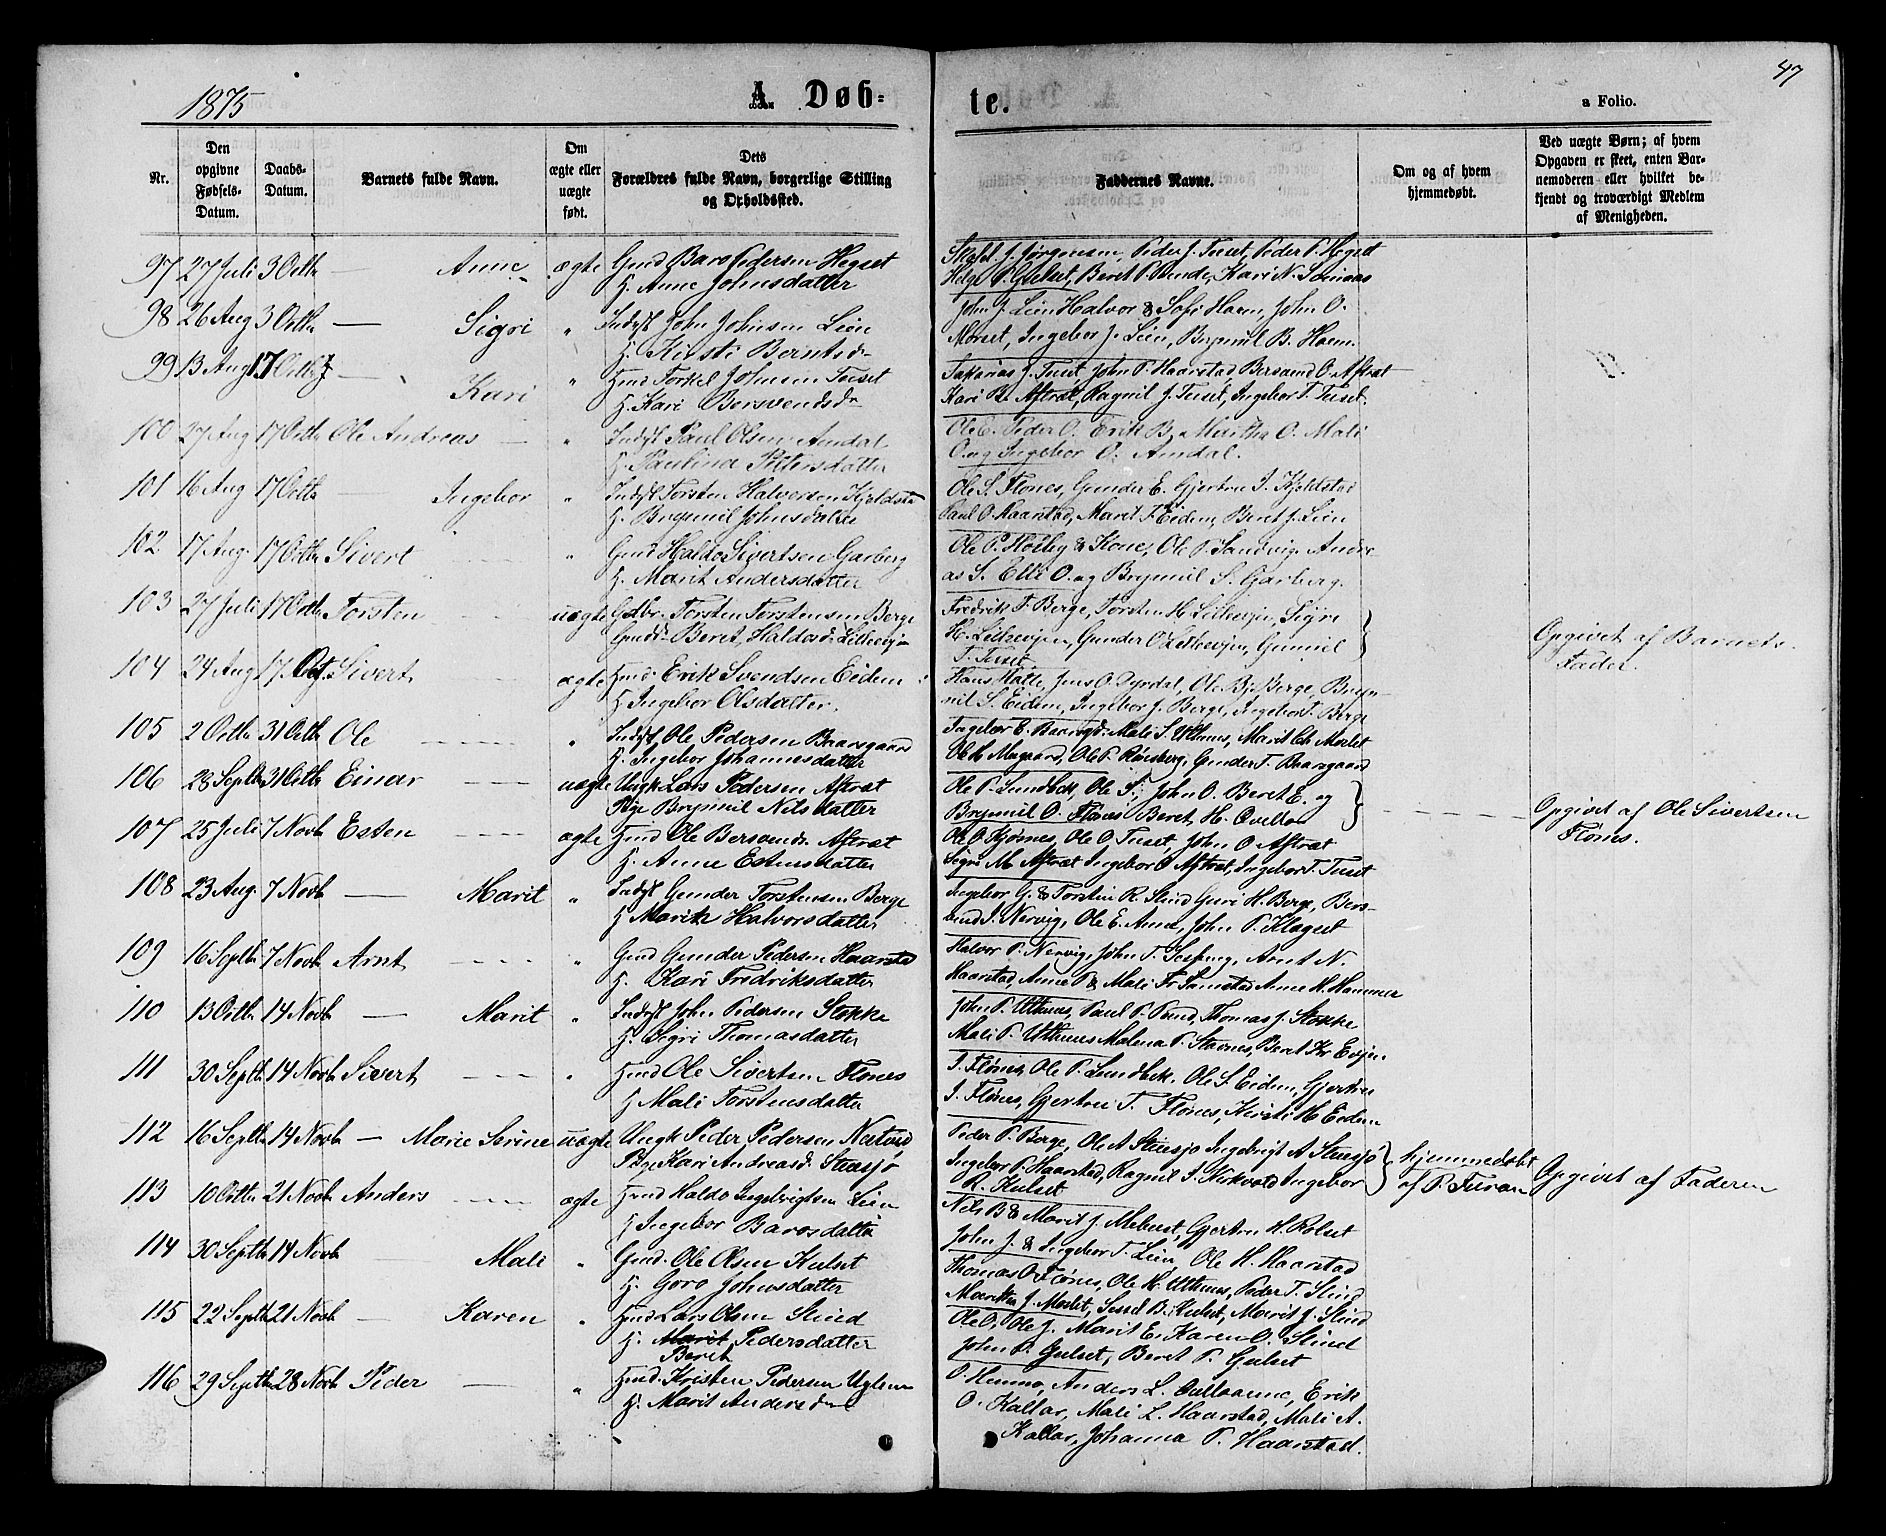 1875
A. Døb=
te.
a Folio.
47
Nr.
Den opgivne Fødsels-Datum.
Daabs-Datum.
Barnets fulde Navn.
Om ægte eller uægte født.
Dets Forældres fulde Navn, borgerlige Stilling og Opholdssted.
Faddernes Navne.
Om og af hvem hjemmedøbt.
Ved uægte Børn; af hvem Opgaven er skeet, enten Barnemoderen eller hvilket bekjendt og troværdigt Medlem af Menigheden.
97 27 Juli 3 Octb — Anne ægte Gmd Baro Pedersen Hegset
H. Anne Johnsdatter
J. Jørgensen, Peder J. Tuset, Peder P. Hegset
Helge P. Gulset, Beret P. Kari N.
98 26 Aug 3 Octb — Sigri " Indst John Johnsen Lien
H. Kirsti Berntsdr
John J. Lien Halvor & Sofi Haem, John O.
Morset, Ingebor J. Lien, Brynnil B. Haem.
99 13 Aug 17 Octb — Kari " Hmd Torkel Johnsen Tuset
H. Kari Bersvendsdr
Sakarias J. Tuset, John P. Haarstad Bersvend O. Aftret
Kari B. Aftret, Ragnil J. Tuset, Ingebor T. Tuset.
100 27 Aug 17 Octb Ole Andreas — " Indst Paul Olsen Amdal
H. Paulina Petersdatter
Ole E. Peder O. Erik B. Maritha O. Mali
O. og Ingebor O. Amdal.
101 16 Aug 17 Octb — Ingebor " Indst Torsten Halvorsen Kjeldsta
H. Brynnil Johnsdatter
Ole S. Flønes, Gunder E. Gjertru I. Kjeldstad
Paul O. Haarstad, Marit T. Eidem, Beret J. Lien
102 17 Aug. 17 Octb Sivert " Gmd Haldo Sivertsen Garberg
H. Marit Andersdatter
Ole P. Hoiby & Kone, Ole P. Sandvig, Andre
as S. Elli O. og Brynnil S. Garberg.
103 27 Juli 17 Octb Torsten uægte Gdbr. Torsten Torstensen Berge
Gmdd. Beret Haldosd. Litlevjen
Fredrik T. Berge, Torsten H. Litlevjen, Sigri
H. Litlevjen, Gunder O. Litlevjen, Gunnil
T. Tuset
Opgivet af Barnets
Fader.
104 24 Aug 17. Oct. Sivert ægte Hmd. Erik Svendsen Eidem
H Ingebor Olsdatter.
Hans Jens O. Dyrdal, Ole Bj. Berge, Bryn-
nil S. Eidem, Ingebor J. Berge, Ingebor T. Berge
105 2 Octb 31 Octb Ole " Indst Ole Pedersen Baarsgaard
H. Ingebor Johannesdatter
Ingebor E. Mali S. Uthuus, Marit Ch. Moslet
Ole P. Rønsberg, Gunder T. Baarsgaard
106 28 Septb 31 Octb Einar uægte Ungk Lars Pedersen Aftret
Pige Brynnil Nilsdatter
Ole P. Lundbek, Ole S., John O. Beret E. og
Brynnil O. Flønes Beret H.
Opgivet af Ole Sivertsen
Flønes.
107 25 Juli 7 Novb Esten ægte Hmd Ole Bersvends. Aftret
H. Anne Estensdatter
Ole O. Kjøsnes, Ole O. Tuset, John O Aftret
Sigri M Aftret Ingebor O Aftret, Ingebor T. Tuset
108 23 Aug. 7 Novb — Marit " Indst Gunder Torstensen Berge
H Marit Halvorsdatter
Ingebor G. & Torstin R. Slind Guri H. Berge, Bers-
vend I. Nervig, Ole E. John P. Klegset
109 16 Septb 7 Novb Arnt " Gmd Gunder Pedersen Haarsta
H. Kari Fredriksdatter
Halvor P. Nervig, John T. Sesseng, Arnt N.
Haarstad, Anne P & Mali Fr. Anne H. Hammer
110 13 Octb 14 Novb — Marit " Indst John Pedersen Stokke
H. Sigri Thomasdatter
John P. Uthuus, Paul P. Thomas J. Stokke
Mali P. Uthuus Malena P. Stavnes, Beret Kr Evjen
111 30 Septb 14 Novb Sivert " Hmd Ole Sivertsen Flønes
H Mali Torstensdatter
I. Flønes, Ole P. Lundbek. Ole S. Eidem, Gjertru
I. Flønes, Gjertru T. Flønes, Kirsti H Eidem
112 16 Septb 14 Novb — Marie Serine uægte Ungk Peder Pedersen
Pige Kari Andreasd. Stensjø
Peder P. Berge, Ole A Stensjø Ingebrigt A Stensjø
Ingebor P. Haarstad, Ragnil I. Kirkvold Ingebor
R. Kulset
hjemmedøbt
af P. Furan
Opgivet af Faderen
113 10 Octb 21 Novb Anders ægte Hmd Haldo Ingebrigtsen Lien
H Ingebor Barosdatter
Nils B & Marit J. Mebust, Gjertru H. Rolset
John J. & Ingebor T. Lien, Ole H. Haarstad
114 30 Septb 14 Novb Mali " Gmd. Ole Olsen Kulset
H. Goro Johnsdatter
Thomas O Flønes, Ole H. Uthuus, Peder T. Slind
Maritta J. Moslet, Sessel B. Kulset, Marit J. Slind
115 22 Septb 21 Novb — Karen " Hmd Lars Olsen Slind
H. Marit Pedersdatter
Beret
Ole O., Ole J. Marit E. Karen O. Slind
John P. Gulset, Beret P. Gulset
116 29 Septb 28 Novb Peder — " Hmd. Kristen Pedersen Uglem
H. Marit Andersdr
O. Hammo, Anders L. Erik
O. Kallar, Mali L. Haarstad, Mali A.
Kallar, Johanna P. Haarstad.